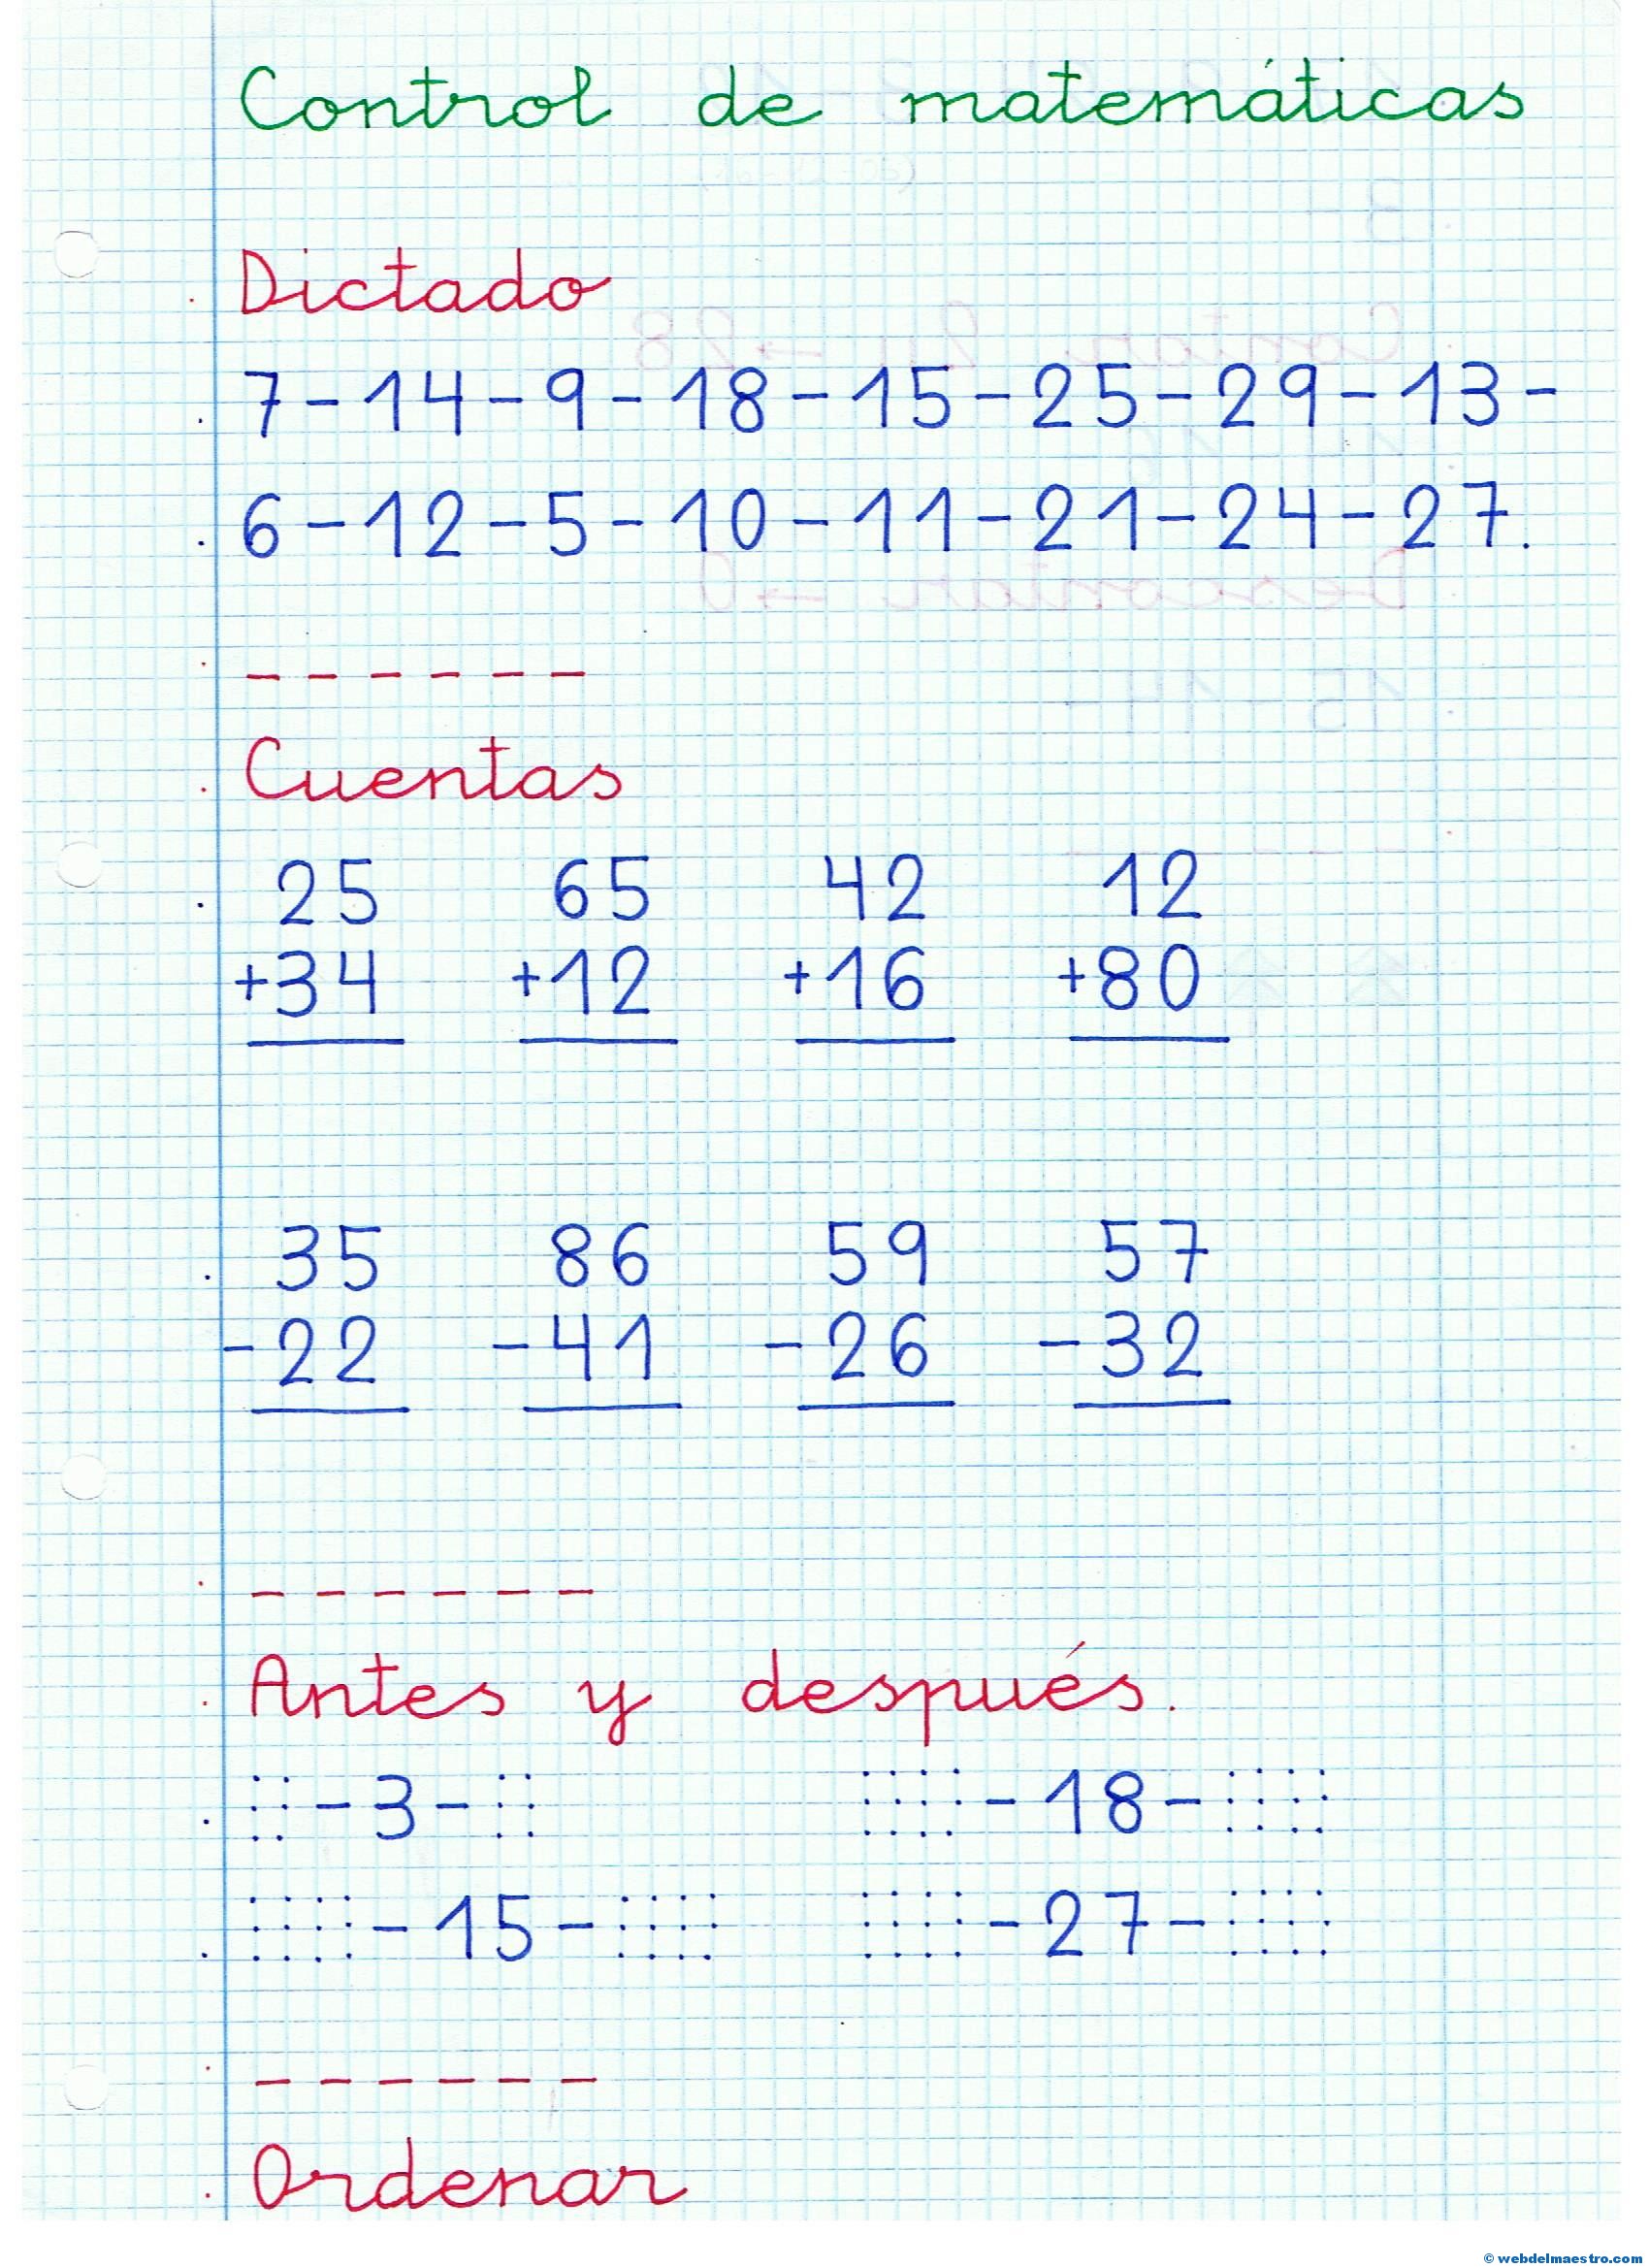 Control de matemáticas
Dictado
7-14-9-18-15-25-29-13-
6-12-5-10-11-21-24-27.
------
Cuentas
25 65 42 12
+34 +12 +16 +80
35 86 59 57
-22 -41 -26 -32
------
Antes y después.
-3- -18-
-15- -27-
------
Ordenar
© webdelmaestro.com